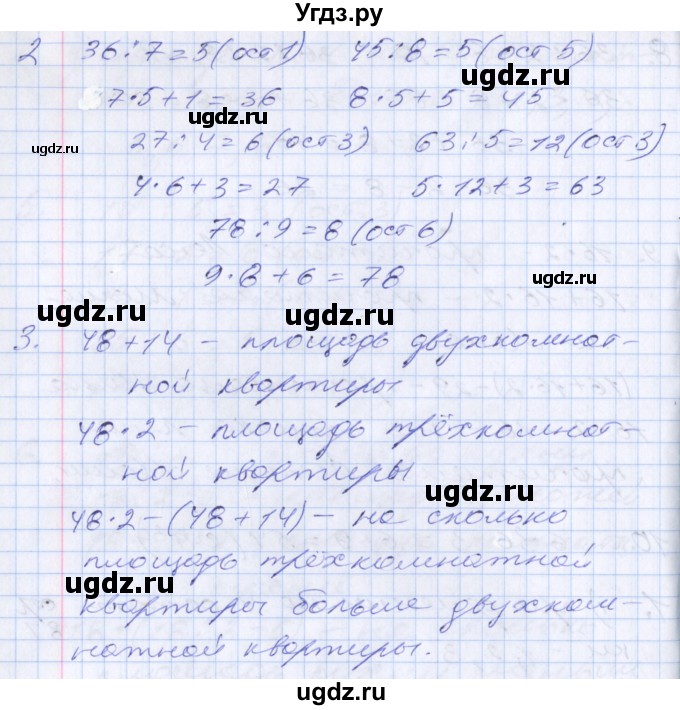 Угдз.ру
2 36:7=5(ост1) 45:8=5(ост 5)
7·5+1=36 8·5+5=45
27:4=6(ост3) 63:5=12(ост3)
4·6+3=27 5·12+3=63
78:9=8(ост6)
9·8+6=78
3. 48+14 - площадь двухкомнат-
ной квартиры
48·2 - площадь трёхкомнат-
ной квартиры
48·2-(48+14) - на сколько
площадь трёхкомнатной
квартиры больше двухком-
натной квартиры.
ugdz.ru
ugdz.ru
ugdz.ru
ugdz.ru
ugdz.ru
ugdz.ru
ugdz.ru
ugdz.ru
ugdz.ru
ugdz.ru
ugdz.ru
ugdz.ru